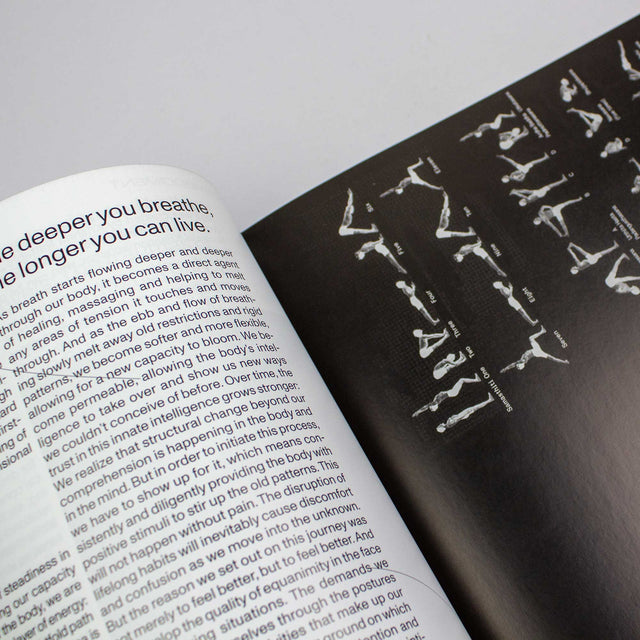 deeper you breathe,
longer you can live.
breath starts flowing deeper and deeper
through our body, it becomes a direct agent
of healing, massaging and helping to melt
any areas of tension it touches and moves
through. And as the ebb and flow of breath-
ing slowly melt away old restrictions and rigid
patterns, we become softer and more flexible,
allowing for a new capacity to bloom. We be-
come permeable, allowing the body's intel-
ligence to take over and show us new ways
we couldn't conceive of before. Over time, the
trust in this innate intelligence grows stronger.
We realize that structural change beyond our
comprehension is happening in the body and
in the mind. But in order to initiate this process,
we have to show up for it, which means con-
sistently and diligently providing the body with
positive stimuli to stir up the old patterns. This
will not happen without pain. The disruption of
lifelong habits will inevitably cause discomfort
and confusion as we move into the unknown.
But the reason we set out on this journey was
not merely to feel better, but to feel better. And
the quality of equanimity in the face
situations. The demands we
through the postures
that make up our
ground on which
and
steadiness in
our capacity
the body, we are
of energy.
path
Samasthiti One Two Three Four
Seven Eight